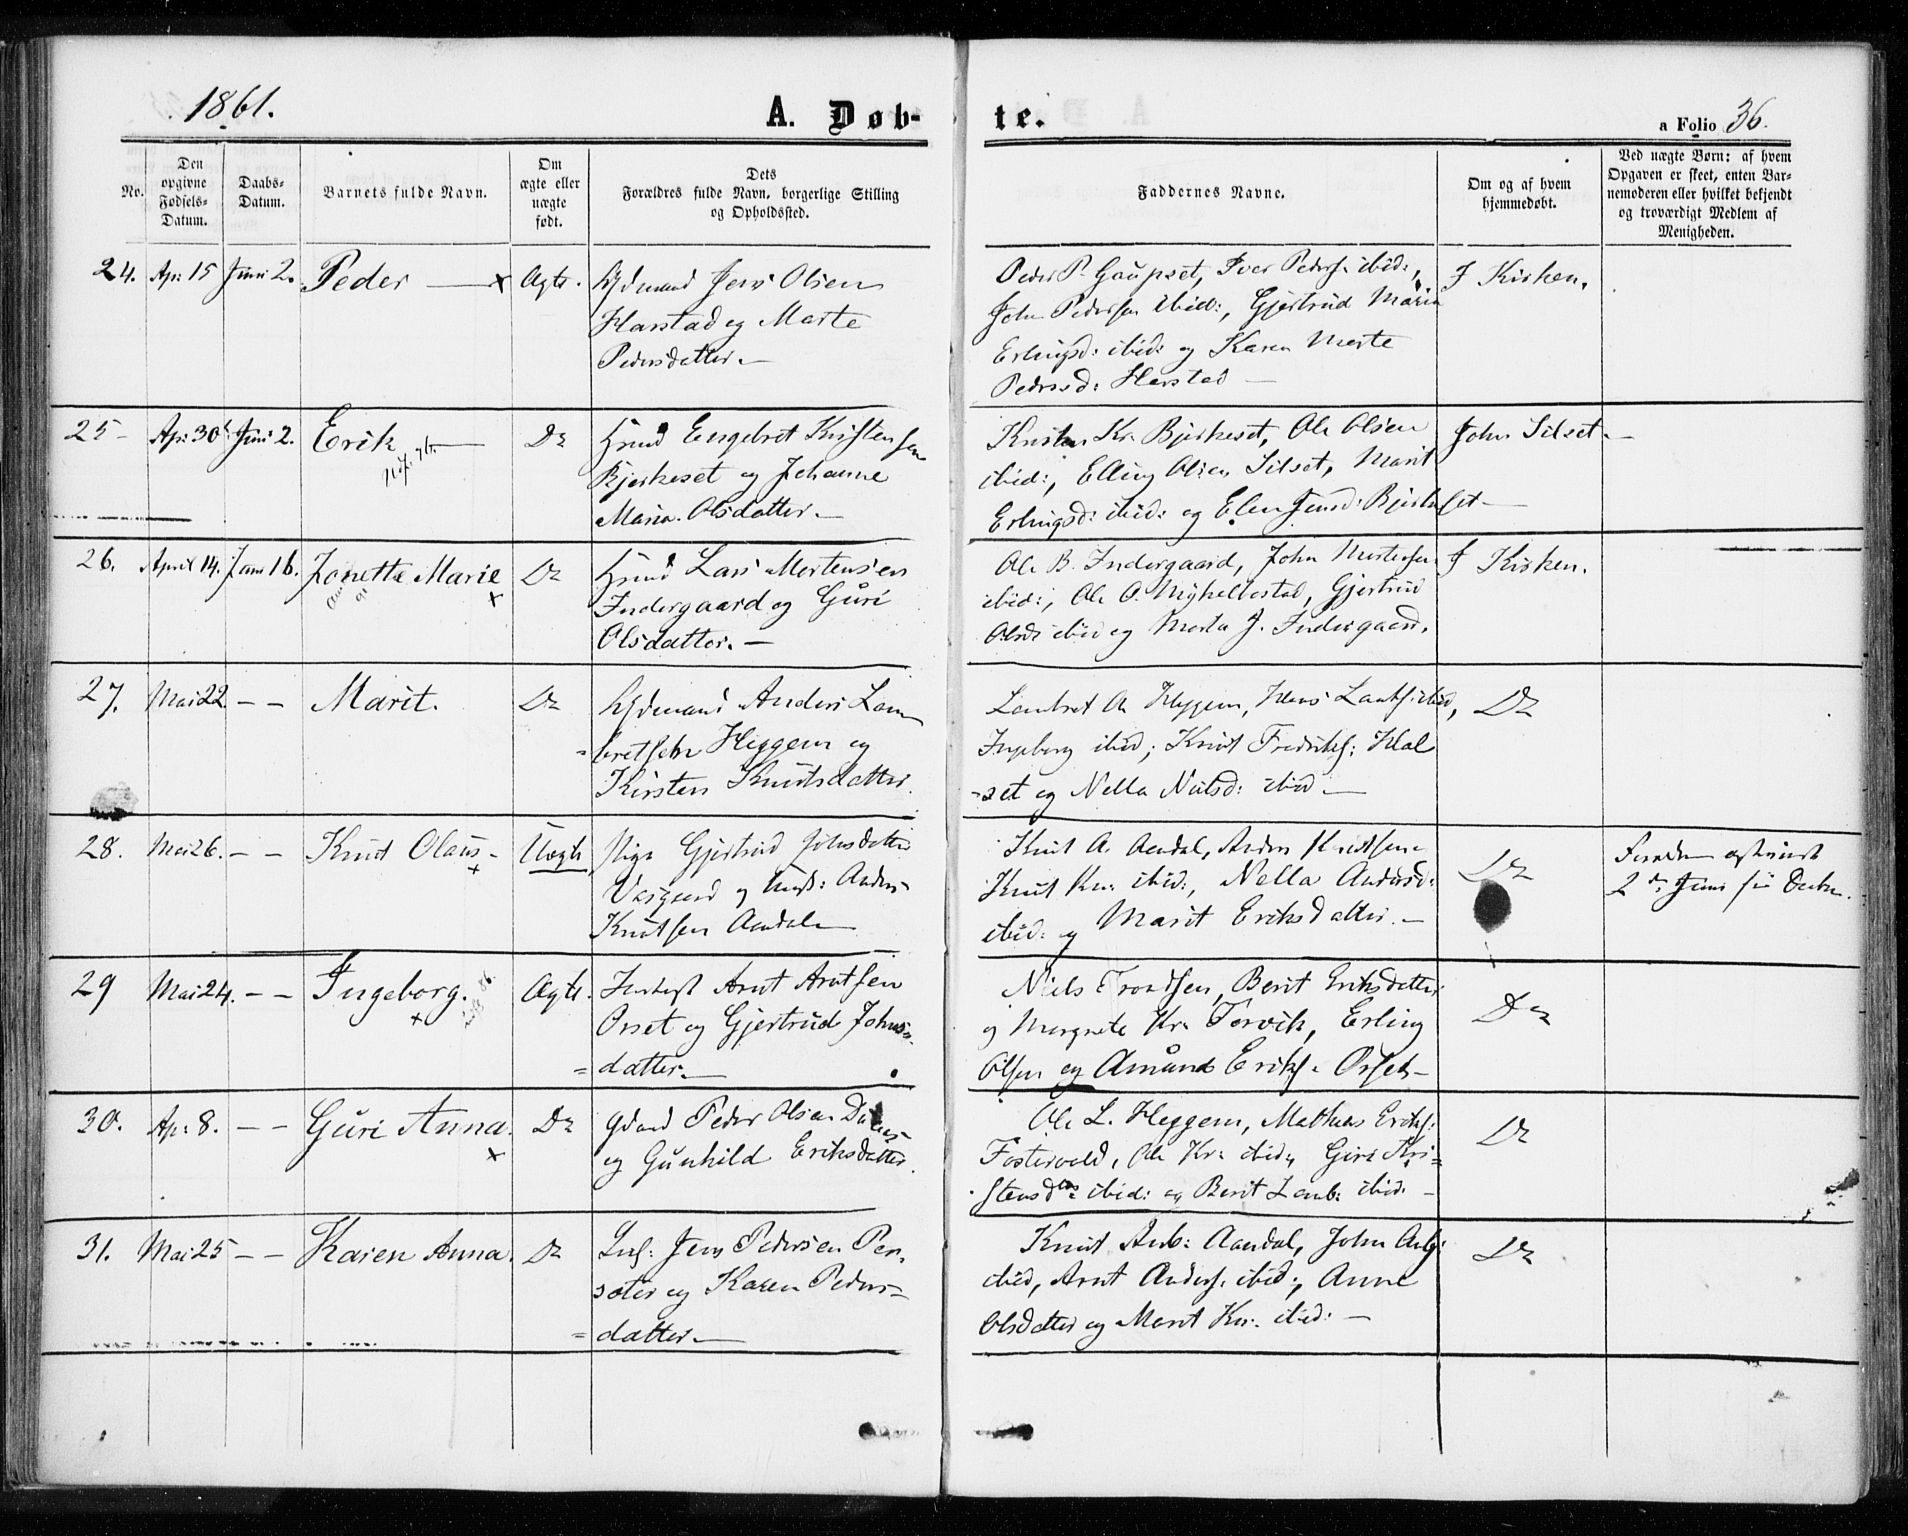 1861.
A. Døb-
te.
a Folio 36.
No.
Den
opgivne
Fødsels-
Datum.
Daabs-
Datum.
Barnets fulde Navn.
Om
ægte eller
uægte
født.
Dets
Forældres fulde Navn, borgerlige Stilling
og Opholdssted.
Faddernes Navne.
Om og af hvem
hjemmedøbt.
Ved uægte Børn: af hvem
Opgaven er skeet, enten Bar-
nemoderen eller hvilket bekjendt
og troværdigt Medlem af
Menigheden.
24. Ap: 15 Juni 2. Peder — x Ægte.
Jens Olsen
Harstad og Marte
Pedersdatter. —
Peder P. Gaupset, Iver Peders: ibid:,
John Pedersen ibid:, Gjertrud Maria
Erlingsd: ibid: og Karen Marte
Pedersd: Harstad —
I Kirken.
25 - Ap: 30 Juni 2. Erik — Do
Engebret Kristensen
Bjerkeset og Johanne
Maria Olsdatter. —
Kristen Kr. Bjerkeset, Ole Olsen
ibid:, Elling Olsen Silset, Marit
Erlingsd: ibid: og Elen Jensd: Bjerkeset —
John Silset. —
26. April 14. Juni 16. Jonette Marie x Do
Lars Mortensen
Indergaard og Guri
Olsdatter. —
Ole B. Indergaard, John Mortensen
ibid:, Ole O. Myklebostad, Gjertrud
Olsd: ibid og Marta J. Indergaard.
I Kirken.
27. Mai 22. - - Marit. Do
Anders Lam
= bretsen Heggem og
Kirsten Knutsdatter.
Lambret A. Heggem, Hans Lambs: ibid,
Ingeborg ibid; Knut Fredriks: Hal
- set og Nella Nielsd: ibid —
Do
28. Mai 26. - - Knut Olaus - x Uægte
Pige Gjertrud Johnsdatter
og Ungk: Anders
Knutsen Aandal
Knut A. Aandal, Anders Knutsen
Knut Kn: ibid:, Nella Andersd:
ibid: og Marit Eriksdatter. —
Do
2 Juni
29 Mai 24. - - Ingeborg. x Ægte.
Arnt Arntsen
Orset og Gjertrud Johns-
= datter. —
Niels Trondsen, Berit Eriksdatter
og Margrete Kr. Torvik, Erling
Olsen og Amund Eriks: Orset —
Do
30. Ap: 8. - - Guri Anna. x Do
Peder Olsen
og Gunhild Eriksdatter.
Ole L. Heggem, Mathias Eriks:
Fostervold, Ole Kr: ibid, Guri Kri-
stensd: ibid: og Berit Lamb: ibid: —
Do
31. Mai 25 - - Karen Anna. Do
Jens Pedersen Per-
sæter og Karen Peders-
= datter —
Knut Andr: Aandal, John
ibid, Arnt Anders: ibid:, Anne
Olsdatter og Marit Kn: ibid: —
Do